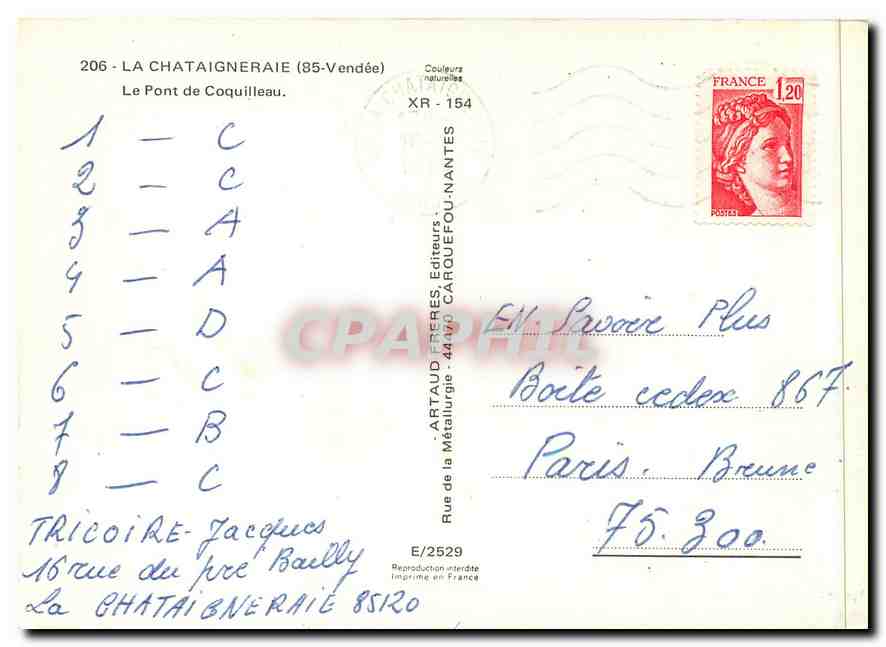 206 - LA CHATAIGNERAIE (85-Vendée)
Le Pont de Coquilleau.
Couleurs
naturelles
XR - 154
FRANCE 1,20
POSTES
1 — C
2 — C
3 — A
4 — A
5 — D
6 — C
7 — B
8 — C
TRICOIRE - Jacques
16 rue du pré Bailly
La CHATAIGNERAIE 85120
- ARTAUD FRERES, Editeurs -
Rue de la Métallurgie - 44470 CARQUEFOU-NANTES
CPAPHIL
EN Savoir Plus
Boite cedex 867
Paris. Brune
75.300.
E/2529
Reproduction interdite
Imprimé en France